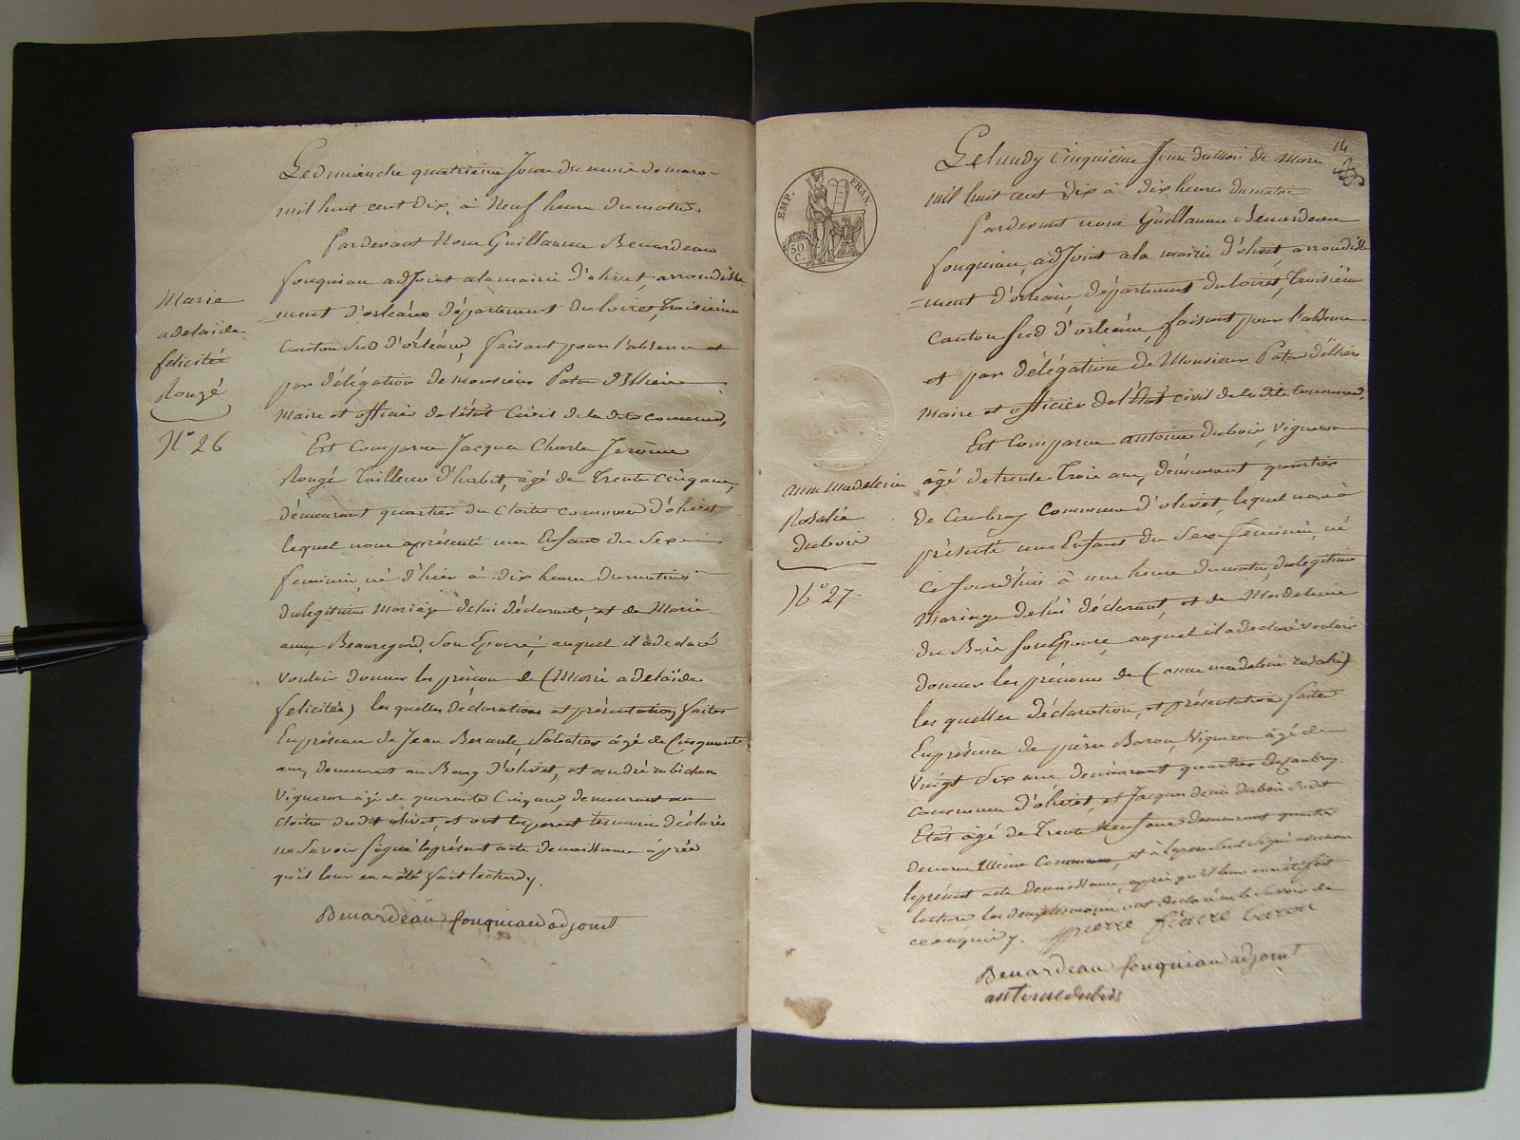 Le dimanche quatrième Jour du mois de mars
mil huit cent dix, à Neuf heure du matin.
Pardevant Nous Guillaume Benardeau
fouquiau adjoint a la mairie d'olivet, arrondisse
ment d'orléans département du loiret, troisième
Canton Sud d'orléans, faisant pour l'absence et
par délégation de monsieur Pata d'Illiers
Maire et officier de l'état Civil de la dite commune,
Est Comparu Jacques Charle Jerôme
Rougé Tailleur d'habit, âgé de trente cinq ans,
démeurant quartier du Cloitre commune d'olivet
lequel nous a présenté un Enfant du Sexe
feminin, né d'hier à dix heure du matin
du legitime mariage de lui déclarant, et de Marie
anne Beauregard, Son Epouse, auquel il a déclaré
vouloir donner les prénoms de (Marie adelaïde
felicitée) les quelles déclarations et présentation faites
En présence de Jean Beraule, Sabotier âgé de Cinquante
ans, demeurant au Bourg d'olivet, et andré rabichon
Vigneron âgé de quarante Cinq ans, demeurant au
cloitre du dit olivet, et ont le pere et temoins déclarés
ne Savoir Signé le présent acte de naissance après
qu'il leur en a été fait lecture.
Benardeau fouquiau adjoint
Marie
adelaïde
felicitée
Rougé
N° 26
14
EMP. FRAN.
50 C.
Le lundy Cinquième Jour du mois de Mars
mil huit cent dix à dix heures du matin
Pardevant nous Guillaume Benardeau
fouquiau, adjoint a la mairie d'olivet, arrondisse
ment d'orléans département du loiret, troisième
canton Sud d'orléans, faisant pour l'absence
et par délégation de Monsieur Pata d'illiers
Maire et officier de l'état civil de la dite Commune,
Est Comparu antoine dubois, vigneron
âgé de trente trois ans, démeurant quartier
de Commune d'olivet, lequel nous à
présenté un Enfant du Sexe feminin, né
ce Jourd'hui à une heure du matin, du legitime
Mariage de lui déclarant, et de Madeleine
du Bois son Epouse, auquel il a déclaré vouloir
donner les prénoms de (anne madeleine rosalie)
les quelles déclaration, et présentation faite
En présence de pierre Baron, Vigneron âgé de
Vingt Six ans demeurant quartier
commune d'olivet, et Jacques denis dubois du dit
Etat âgé de Trente Neuf ans demeurant quartier
même Commune, et le pere
le présent acte de naissance, après qu'il leur en a été fait
lecture déclaré ne le Savoir de
ce enquis. pierre baron
Benardeau fouquiau adjoint
antoine dubois
anne Madeleine
Rosalie
dubois
N° 27